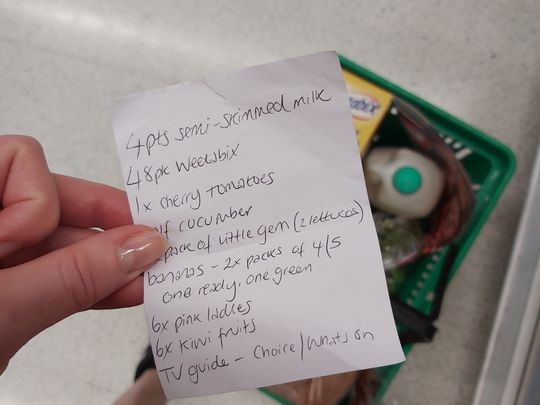 4pts semi-skimmed milk
48pk Weetabix
1x cherry tomatoes
cucumber
pack of little gem (2 lettuces)
bananas - 2x packs of 4/5
one ready, one green
6x pink ladies
6x kiwi fruits
TV guide - Choice/Whats on